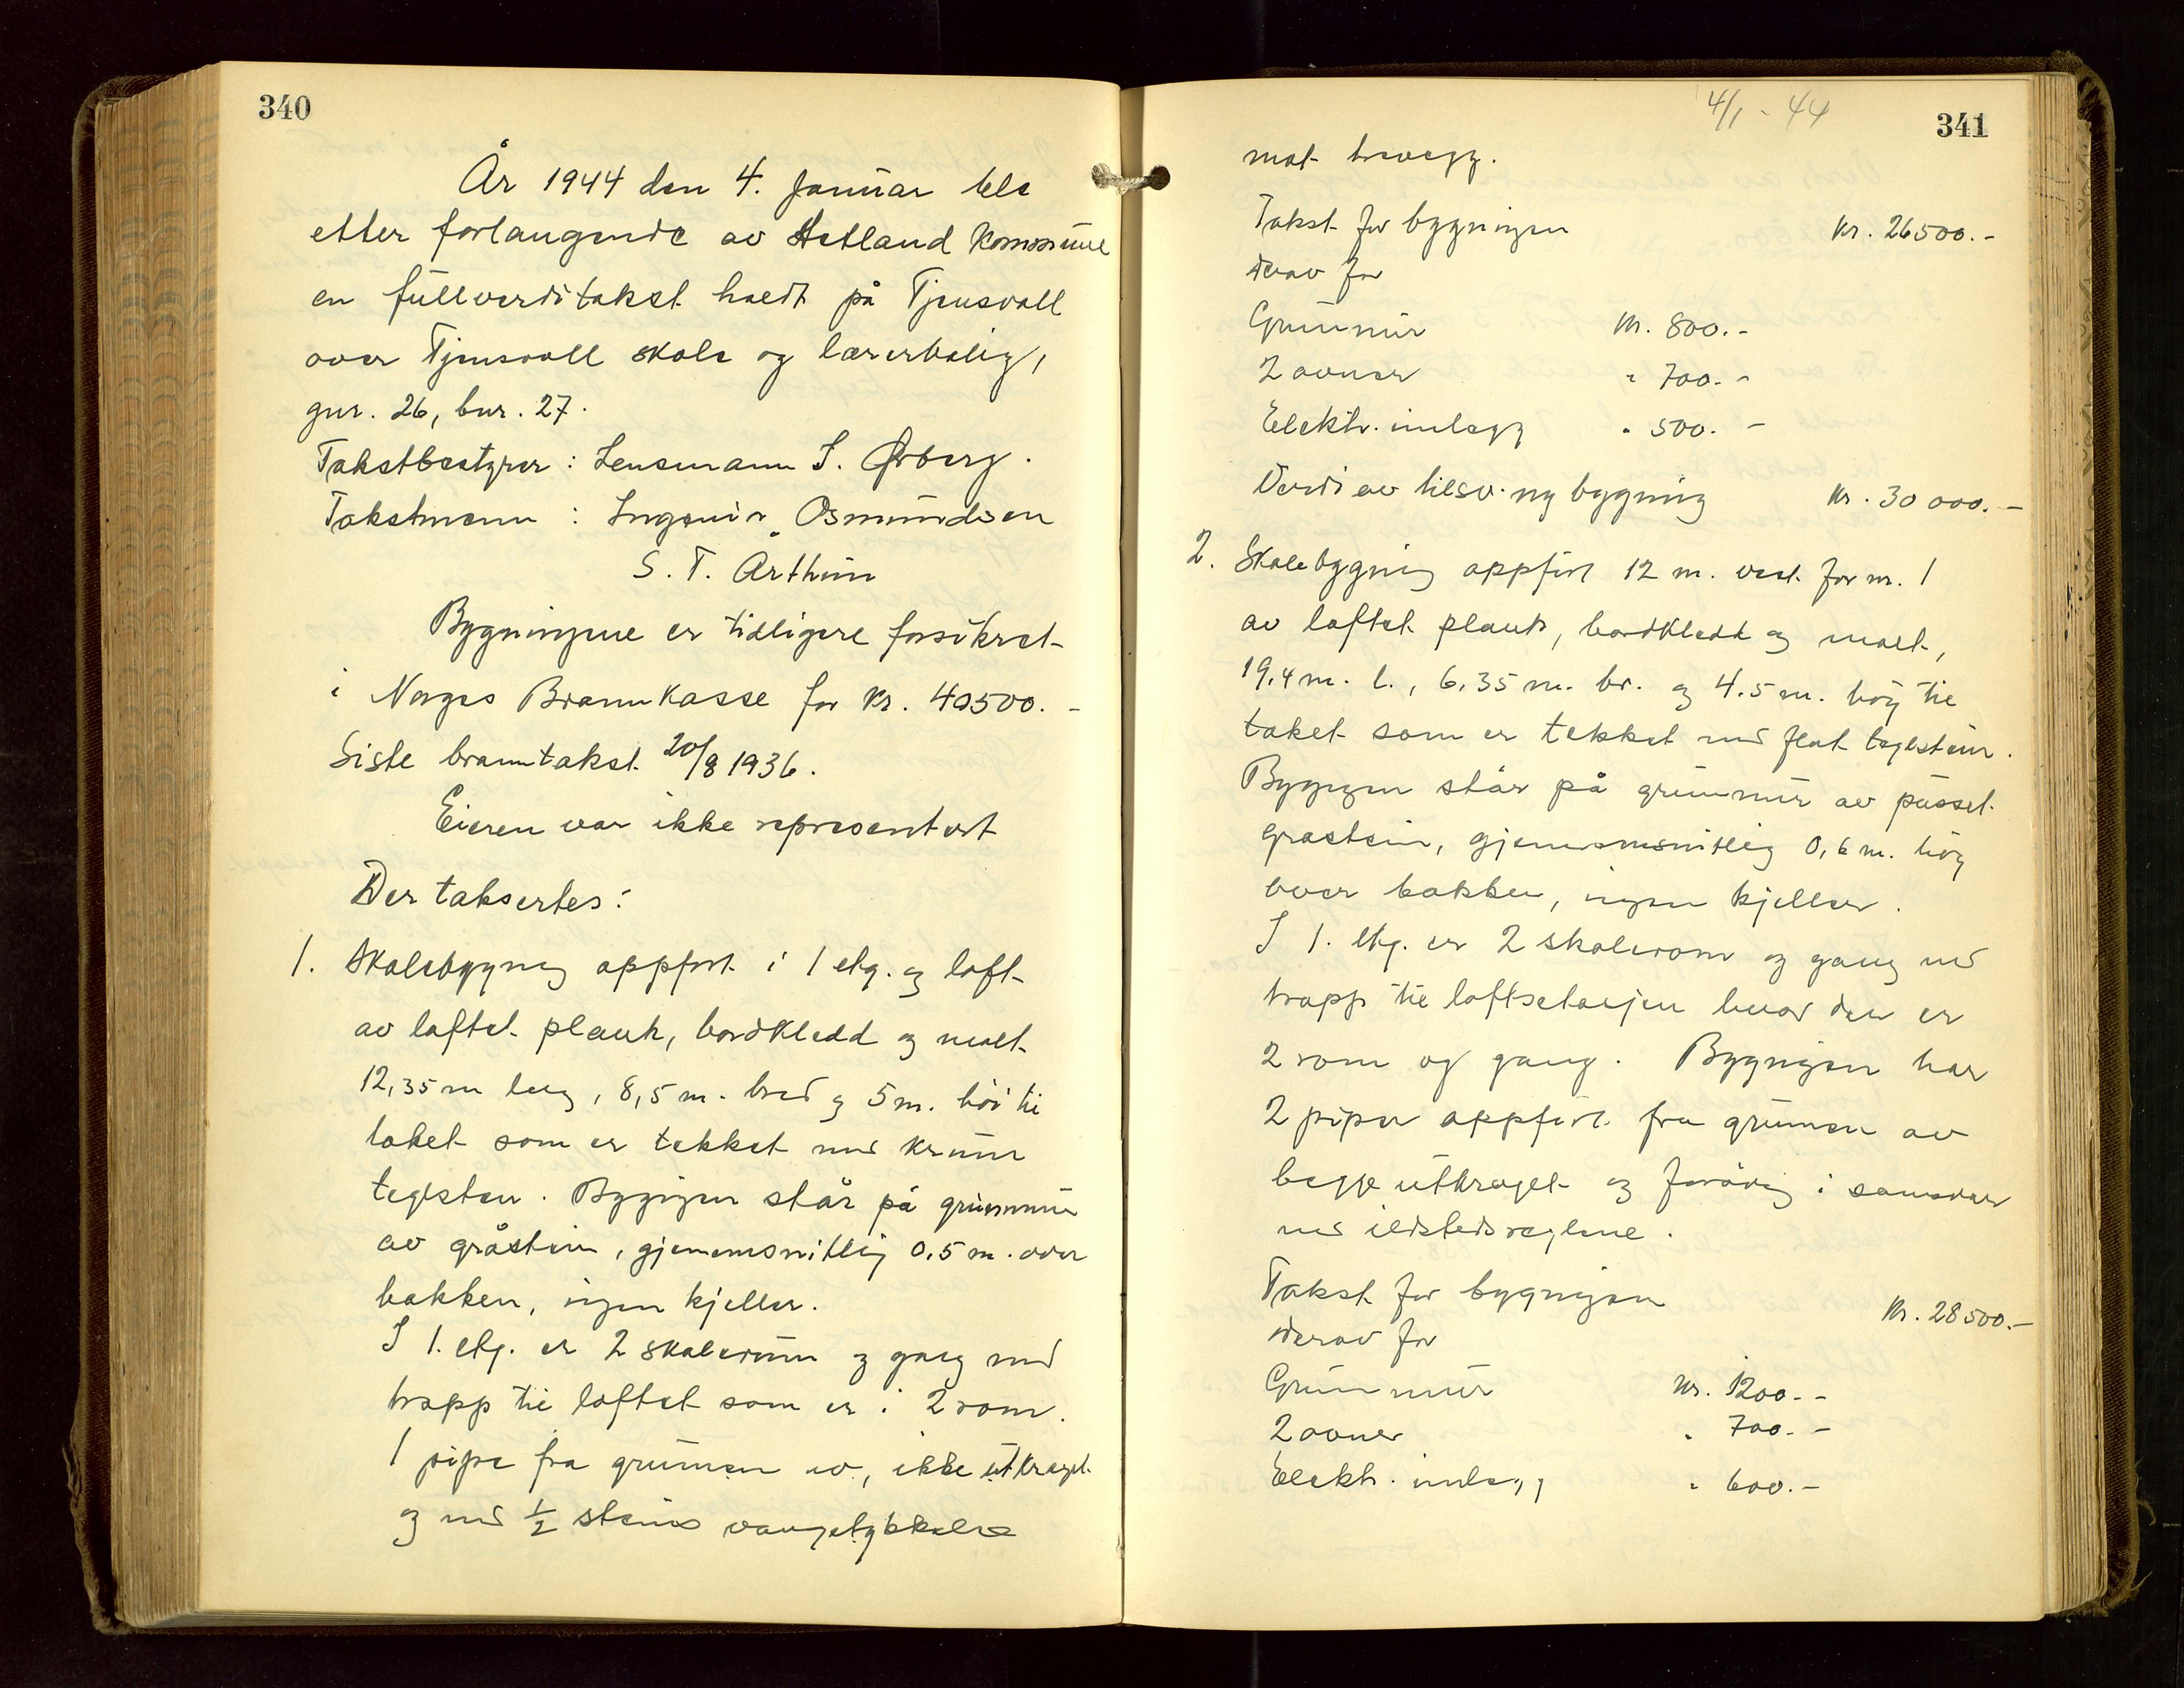 340
År 1944 den 4. Januar ble
etter forlangende av Hetland Kommune
en fullverditakst holdt på Tjensvoll
over Tjensvoll skole og lærerbolig,
gnr. 26, bnr. 27.
Takstbestyrer: Lensmann I. Ørberg.
Takstmenn: Ingeniør Osmundsen
S. T. Årthun
Bygningene er tidligere forsikret
i Norges Brannkasse for kr. 40500.-
Siste branntakst 20/8 1936.
Eieren var ikke representert
Der taksertes:
1. Skolebygning oppfört i 1 etg. og loft
av laftet plank, bordkledd og malt
12,35 m lang, 8,5 m. bred og 5 m. höi til
taket som er tekket med krum
teglsten. Bygningen står på grunnmur
av gråstein, gjennemsnitlig 0.5 m. over
bakken, ingen kjeller.
I 1. etg. er 2 skolerum og gang med
trapp til loftet som er i 2 rom.
1 pipe fra grunnen av, ikke utkraget
og med 1/2 steins vangetykkelse
4/1 - 44
341
mot trevegg.
Takst for bygningen kr. 26500.-
derav for
Grunnmur kr. 800.-
2 ovner " 700.-
Elektr. innlegg " 500.-
Verdi av tilsv. ny bygning kr. 30 000.-
2. Skolebygning oppfört 12 m. vest for nr. 1
av laftet plank, bordkledt og malt,
19,4 m. l., 6,35 m. br. og 4.5 m. höy til
taket som er tekket med flat teglstein.
Bygningen står på grunnmur av pusset
gråstein, gjennomsnitlig 0,6 m. höy
over bakken, ingen kjeller.
I 1. etg. er 2 skolerom og gang med
trapp til loftsetasjen hvor der er
2 rom og gang. Bygningen har
2 piper oppfört fra grunnen av
begge utkraget og forövrig i samsvar
med ildstedsreglene.
Takst for bygningen kr. 28500.-
derav for
Grunnmur kr. 1200.-
2 ovner " 700.-
Elektr. innlegg " 600.-